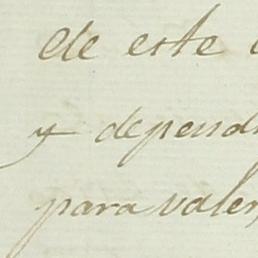 de este
y depend
para valer